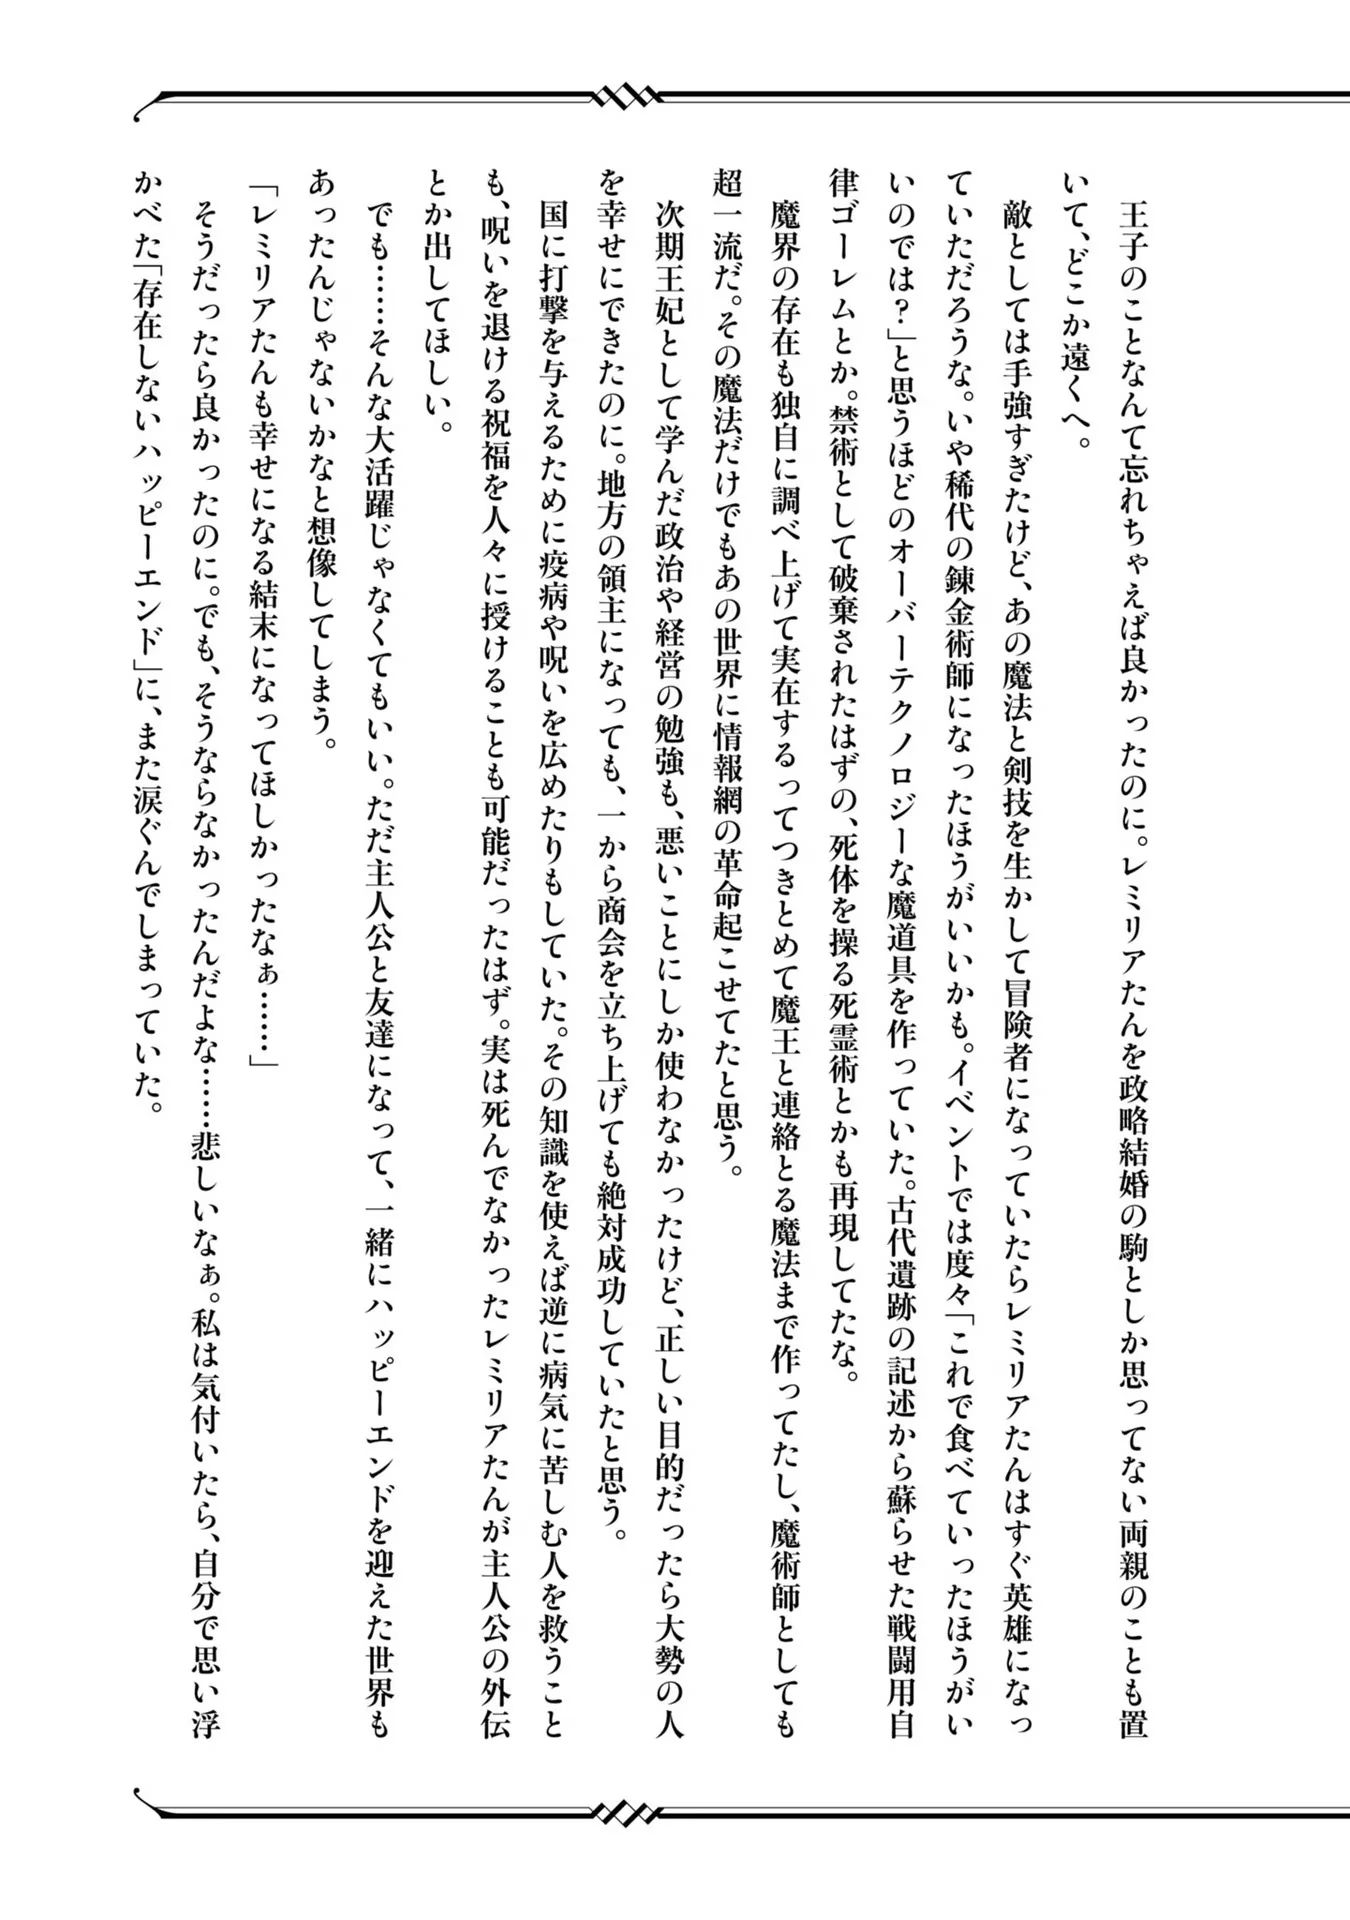 王子のことなんて忘れちゃえば良かったのに。レミリアたんを政略結婚の駒としか思ってない両親のことも置
いて、どこか遠くへ。
　敵としては手強すぎたけど、あの魔法と剣技を生かして冒険者になっていたらレミリアたんはすぐ英雄になっ
ていただろうな。いや稀代の錬金術師になったほうがいいかも。イベントでは度々「これで食べていったほうがい
いのでは？」と思うほどのオーバーテクノロジーな魔道具を作っていた。古代遺跡の記述から蘇らせた戦闘用自
律ゴーレムとか。禁術として破棄されたはずの、死体を操る死霊術とかも再現してたな。
　魔界の存在も独自に調べ上げて実在するってつきとめて魔王と連絡とる魔法まで作ってたし、魔術師としても
超一流だ。その魔法だけでもあの世界に情報網の革命起こせてたと思う。
　次期王妃として学んだ政治や経営の勉強も、悪いことにしか使わなかったけど、正しい目的だったら大勢の人
を幸せにできたのに。地方の領主になっても、一から商会を立ち上げても絶対成功していたと思う。
　国に打撃を与えるために疫病や呪いを広めたりもしていた。その知識を使えば逆に病気に苦しむ人を救うこと
も、呪いを退ける祝福を人々に授けることも可能だったはず。実は死んでなかったレミリアたんが主人公の外伝
とか出してほしい。
　でも……そんな大活躍じゃなくてもいい。ただ主人公と友達になって、一緒にハッピーエンドを迎えた世界も
あったんじゃないかなと想像してしまう。
「レミリアたんも幸せになる結末になってほしかったなぁ……」
　そうだったら良かったのに。でも、そうならなかったんだよな……悲しいなぁ。私は気付いたら、自分で思い浮
かべた「存在しないハッピーエンド」に、また涙ぐんでしまっていた。